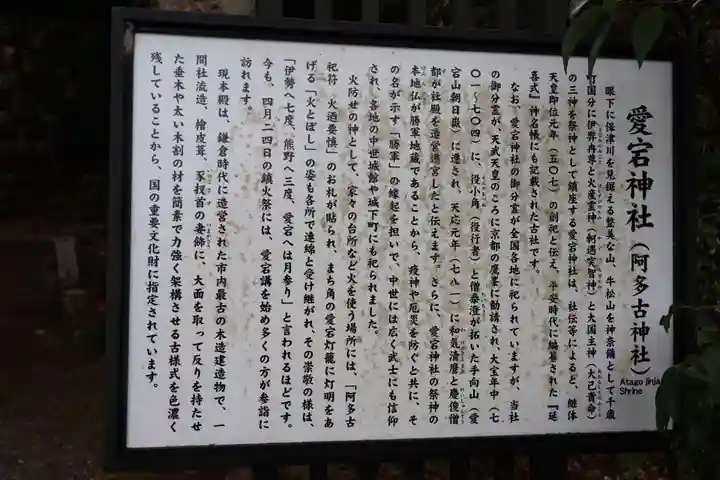 愛宕神社(阿多古神社)
Atago jinja
Shrine
眼下に保津川を見据える整美な山、牛松山を神奈備として千歳
町国分に伊弉冉尊と火産霊神(軻遇突智神)と大国主神(大己貴命)
の三神を祭神として鎮座する愛宕神社は、社伝等によると、継体
天皇即位元年(五〇七)の創祀と伝え、平安時代に編纂された『延
喜式』神名帳にも記載された古社です。
なお、愛宕神社の御分霊が全国各地に祀られていますが、当社
の御分霊が、天武天皇のころに京都の鷹峯に勧請され、大宝年中(七
〇一~七〇四)に、役小角(役行者)と僧泰澄が拓いた手向山(愛
宕山朝日嶽)に遷され、天応元年(七八一)に和気清麿と慶俊僧
都が社殿を造営遷宮したと伝えます。さらに、愛宕神社の祭神の
本地仏が勝軍地蔵であることから、疫神や厄災を防ぐと共に、そ
の名が示す「勝軍」の縁起を担いで、中世には広く武士にも信仰
され、各地の中世城館や城下町にも祀られました。
火防せの神として、家々の台所など火を使う場所には、「阿多古
祀符 火廼要慎」のお札が貼られ、まち角の愛宕灯籠に灯明をあ
げる「火とぼし」の姿も各所で連綿と受け継がれ、その崇敬の様は、
「伊勢へ七度、熊野へ三度、愛宕へは月参り」と言われるほどです。
今も、四月二四日の鎮火祭には、愛宕講を始め多くの方が参詣に
訪れます。
現本殿は、鎌倉時代に造営された市内最古の木造建造物で、一
間社流造、檜皮葺、豕扠首の妻飾に、大面を取って反りを持たせ
た垂木や太い木割の材を簡素で力強く架構させる古様式を色濃く
残していることから、国の重要文化財に指定されています。